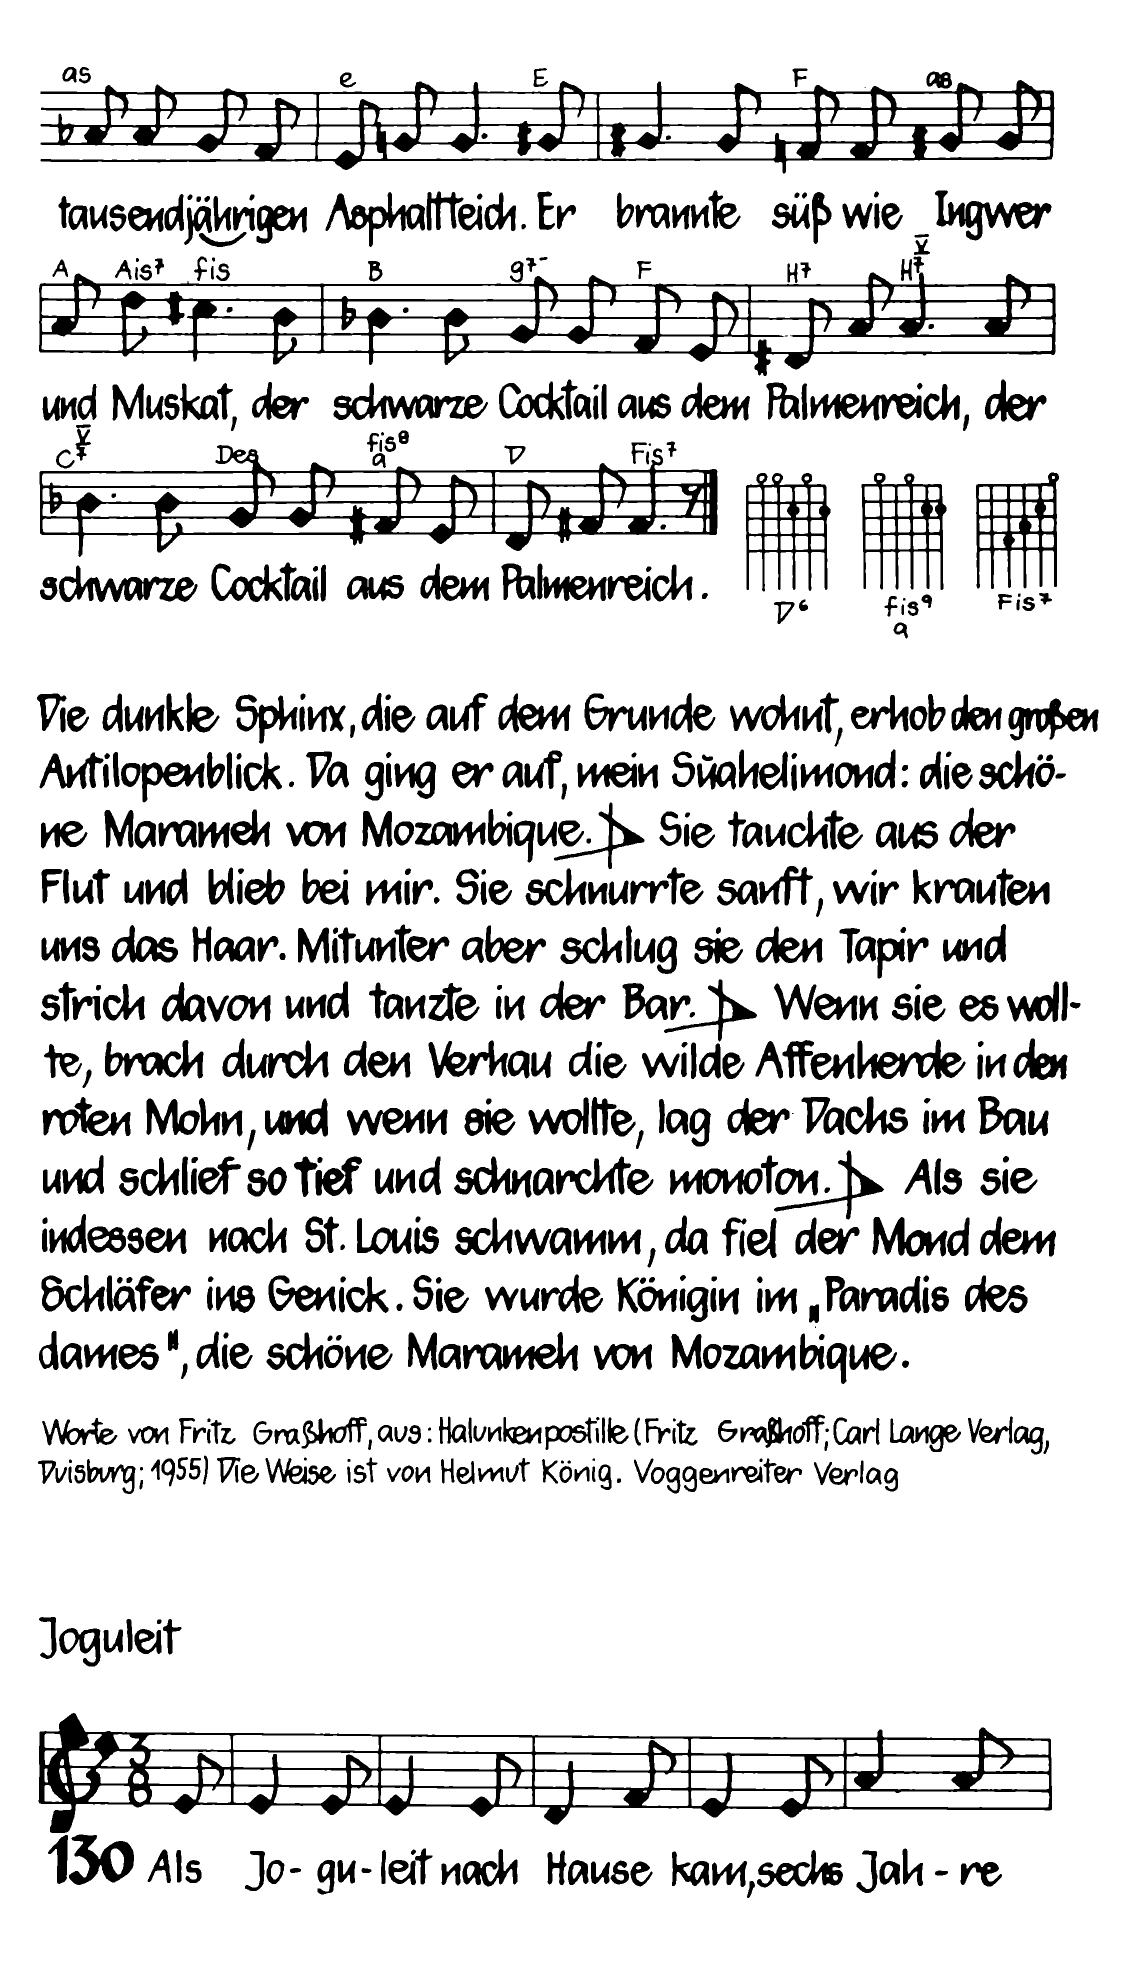 as e E F as
tausendjährigen Asphaltteich. Er brannte süß wie Ingwer
A Ais⁷ fis B g⁷⁻ F H⁷ H⁷ V
und Muskat, der schwarze Cocktail aus dem Palmenreich, der
C⁷ V Des fis⁸ a D Fis⁷
schwarze Cocktail aus dem Palmenreich.
D⁶ fis⁹ a Fis⁷
Die dunkle Sphinx, die auf dem Grunde wohnt, erhob den großen
Antilopenblick. Da ging er auf, mein Sŭahelimond: die schö-
ne Marameh von Mozambique. Sie tauchte aus der
Flut und blieb bei mir. Sie schnurrte sanft, wir krauten
uns das Haar. Mitunter aber schlug sie den Tapir und
strich davon und tanzte in der Bar. Wenn sie es woll-
te, brach durch den Verhau die wilde Affenherde in den
roten Mohn, und wenn sie wollte, lag der Dachs im Bau
und schlief so tief und schnarchte monoton. Als sie
indessen nach St. Louis schwamm, da fiel der Mond dem
Schläfer ins Genick. Sie wurde Königin im „Paradis des
dames", die schöne Marameh von Mozambique.
Worte von Fritz Graßhoff, aus: Halunkenpostille (Fritz Graßhoff; Carl Lange Verlag,
Duisburg; 1955) Die Weise ist von Helmut König. Voggenreiter Verlag
Joguleit
3
8
130 Als Jo-gu-leit nach Hause kam, sechs Jah-re